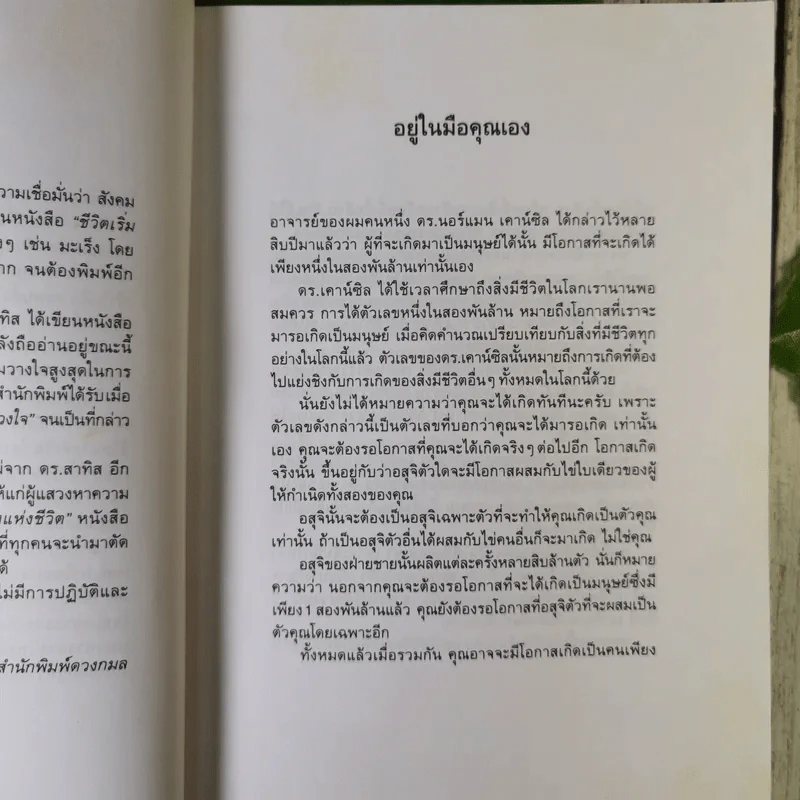 วามเชื่อมั่นว่า สังคม
นหนังสือ "ชีวิตเริ่ม
งๆ เช่น มะเร็ง โดย
าก จนต้องพิมพ์อีก
ทิส ได้เขียนหนังสือ
ลังถืออ่านอยู่ขณะนี้
มวางใจสูงสุดในการ
สำนักพิมพ์ได้รับเมื่อ
วงใจ" จนเป็นที่กล่าว
ม่จาก ดร.สาทิส อีก
ห้แก่ผู้แสวงหาความ
นแห่งชีวิต" หนังสือ
ที่ทุกคนจะนำมาดัด
ด้
ไม่มีการปฏิบัติและ
สำนักพิมพ์ดวงกมล
อยู่ในมือคุณเอง
อาจารย์ของผมคนหนึ่ง ดร.นอร์แมน เคาน์ซิล ได้กล่าวไว้หลาย
สิบปีมาแล้วว่า ผู้ที่จะเกิดมาเป็นมนุษย์ได้นั้น มีโอกาสที่จะเกิดได้
เพียงหนึ่งในสองพันล้านเท่านั้นเอง
ดร.เคาน์ซิล ได้ใช้เวลาศึกษาถึงสิ่งมีชีวิตในโลกเรานานพอ
สมควร การได้ตัวเลขหนึ่งในสองพันล้าน หมายถึงโอกาสที่เราจะ
มารอเกิดเป็นมนุษย์ เมื่อคิดคำนวณเปรียบเทียบกับสิ่งที่มีชีวิตทุก
อย่างในโลกนี้แล้ว ตัวเลขของดร.เคาน์ซิลนั้นหมายถึงการเกิดที่ต้อง
ไปแย่งชิงกับการเกิดของสิ่งมีชีวิตอื่นๆ ทั้งหมดในโลกนี้ด้วย
นั่นยังไม่ได้หมายความว่าคุณจะได้เกิดทันทีนะครับ เพราะ
ตัวเลขดังกล่าวนี้เป็นตัวเลขที่บอกว่าคุณจะได้มารอเกิด เท่านั้น
เอง คุณจะต้องรอโอกาสที่คุณจะได้เกิดจริงๆ ต่อไปอีก โอกาสเกิด
จริงนั้น ขึ้นอยู่กับว่าอสุจิตัวใดจะมีโอกาสผสมกับไข่ใบเดียวของผู้
ให้กำเนิดทั้งสองของคุณ
อสุจินั้นจะต้องเป็นอสุจิเฉพาะตัวที่จะทำให้คุณเกิดเป็นตัวคุณ
เท่านั้น ถ้าเป็นอสุจิตัวอื่นได้ผสมกับไข่คนอื่นก็จะมาเกิด ไม่ใช่คุณ
อสุจิของฝ่ายชายนั้นผลิตแต่ละครั้งหลายสิบล้านตัว นั่นก็หมาย
ความว่า นอกจากคุณจะต้องรอโอกาสที่จะได้เกิดเป็นมนุษย์ซึ่งมี
เพียง 1 สองพันล้านแล้ว คุณยังต้องรอโอกาสที่อสุจิตัวที่จะผสมเป็น
ตัวคุณโดยเฉพาะอีก
ทั้งหมดแล้วเมื่อรวมกัน คุณอาจจะมีโอกาสเกิดเป็นคนเพียง